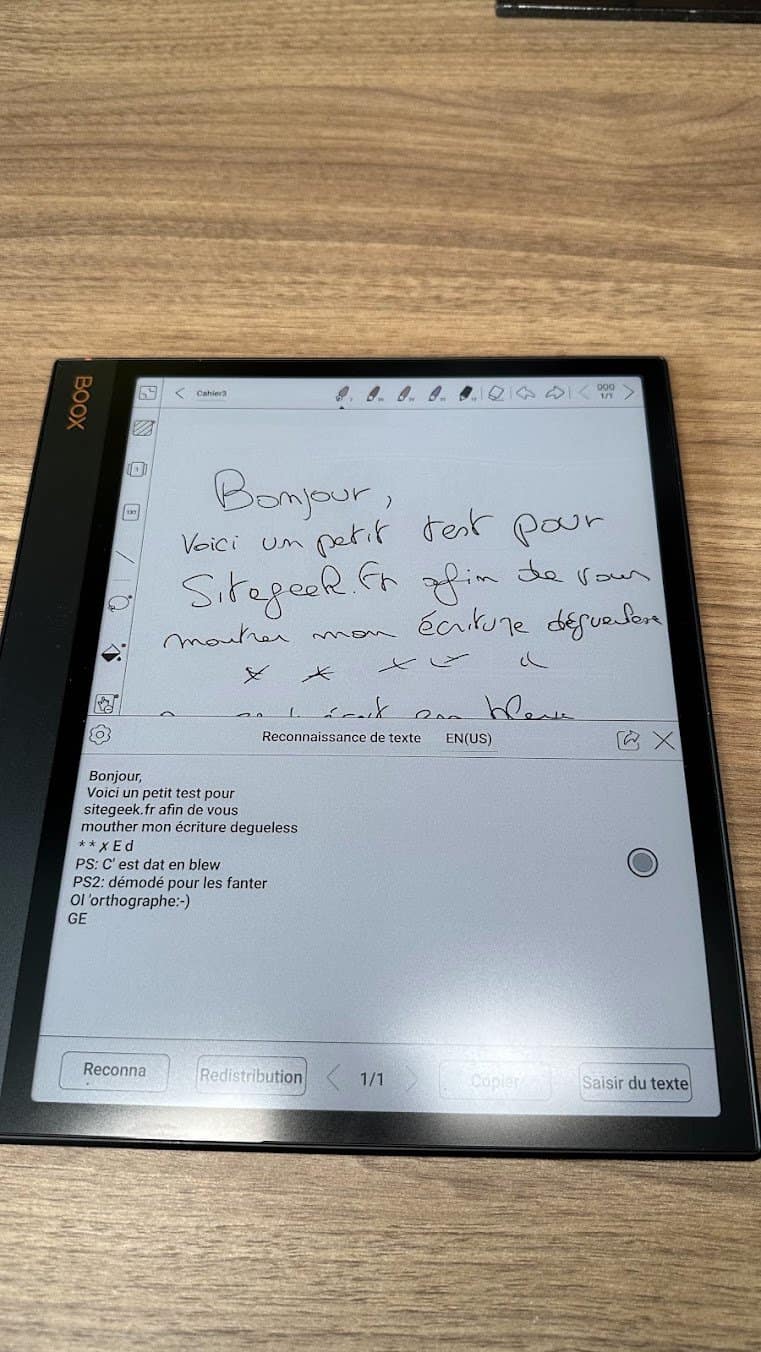 BOOX
Cahier3
1/1
Bonjour,
Voici un petit test pour
Sitegeek.Fr afin de vous
montrer mon écriture
en bleu
Reconnaissance de texte EN(US)
Bonjour,
Voici un petit test pour
sitegeek.fr afin de vous
mouther mon écriture degueless
* * x E d
PS: C' est dat en blew
PS2: démodé pour les fanter
Ol 'orthographe:-)
GE
Reconna
Redistribution
1/1
Copier
Saisir du texte